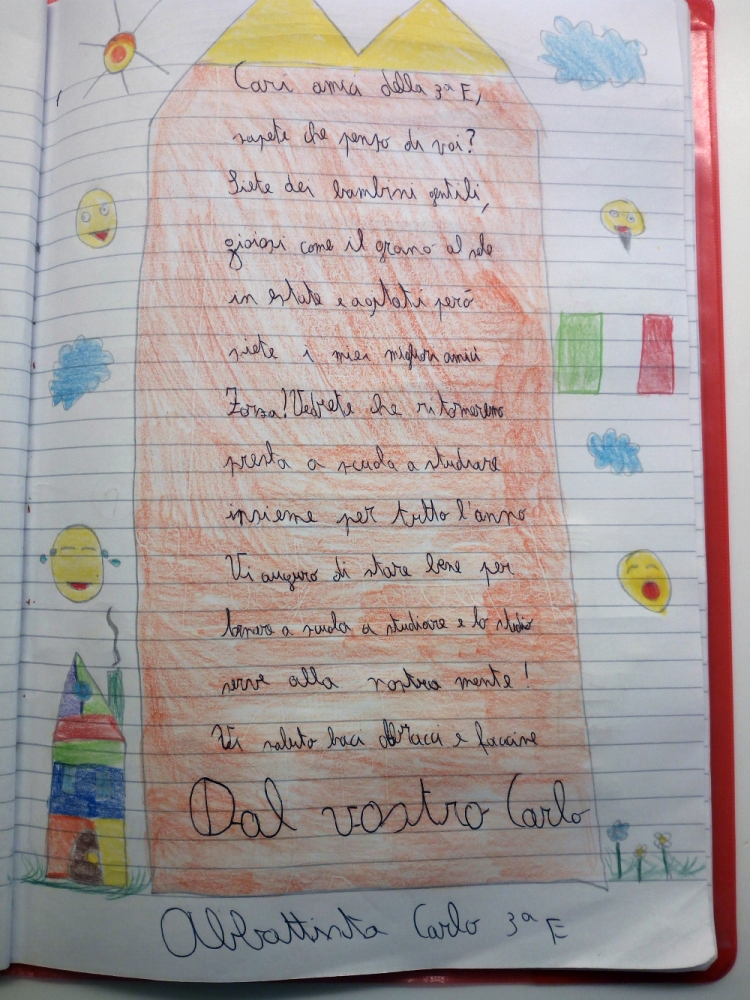 Cari amici della 3ª E,
sapete che penso di voi?
Siete dei bambini gentili,
gioiosi come il grano al sole
in estate e agitati però
siete i miei migliori amici
Forza! Vedrete che ritorneremo
presto a scuola a studiare
insieme per tutto l'anno
Vi auguro di stare bene per
tornare a scuola a studiare e lo studio
serve alla nostra mente!
Vi saluto baci abbracci e faccine
Dal vostro Carlo
Abbattista Carlo 3ª E